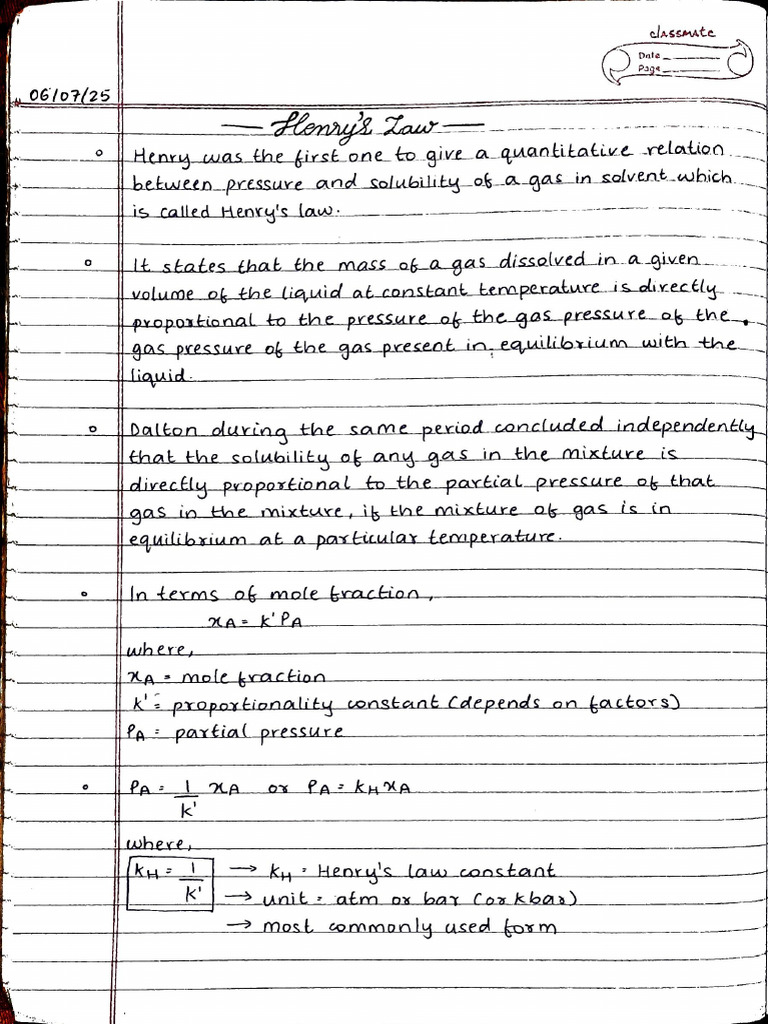 classmate
Date
Page
06/07/25
— Henry's Law —
Henry was the first one to give a quantitative relation
between pressure and solubility of a gas in solvent which
is called Henry's law.
It states that the mass of a gas dissolved in a given
volume of the liquid at constant temperature is directly
proportional to the pressure of the gas pressure of the
gas pressure of the gas present in equilibrium with the
liquid.
Dalton during the same period concluded independently
that the solubility of any gas in the mixture is
directly proportional to the partial pressure of that
gas in the mixture, if the mixture of gas is in
equilibrium at a particular temperature.
In terms of mole fraction,
xA = K' PA
where,
xA = mole fraction
K' = proportionality constant (depends on factors)
PA = partial pressure
PA = 1/K' xA or PA = KH xA
where,
KH = 1/K' → KH = Henry's law constant
→ unit = atm or bar (or kbar)
→ most commonly used form